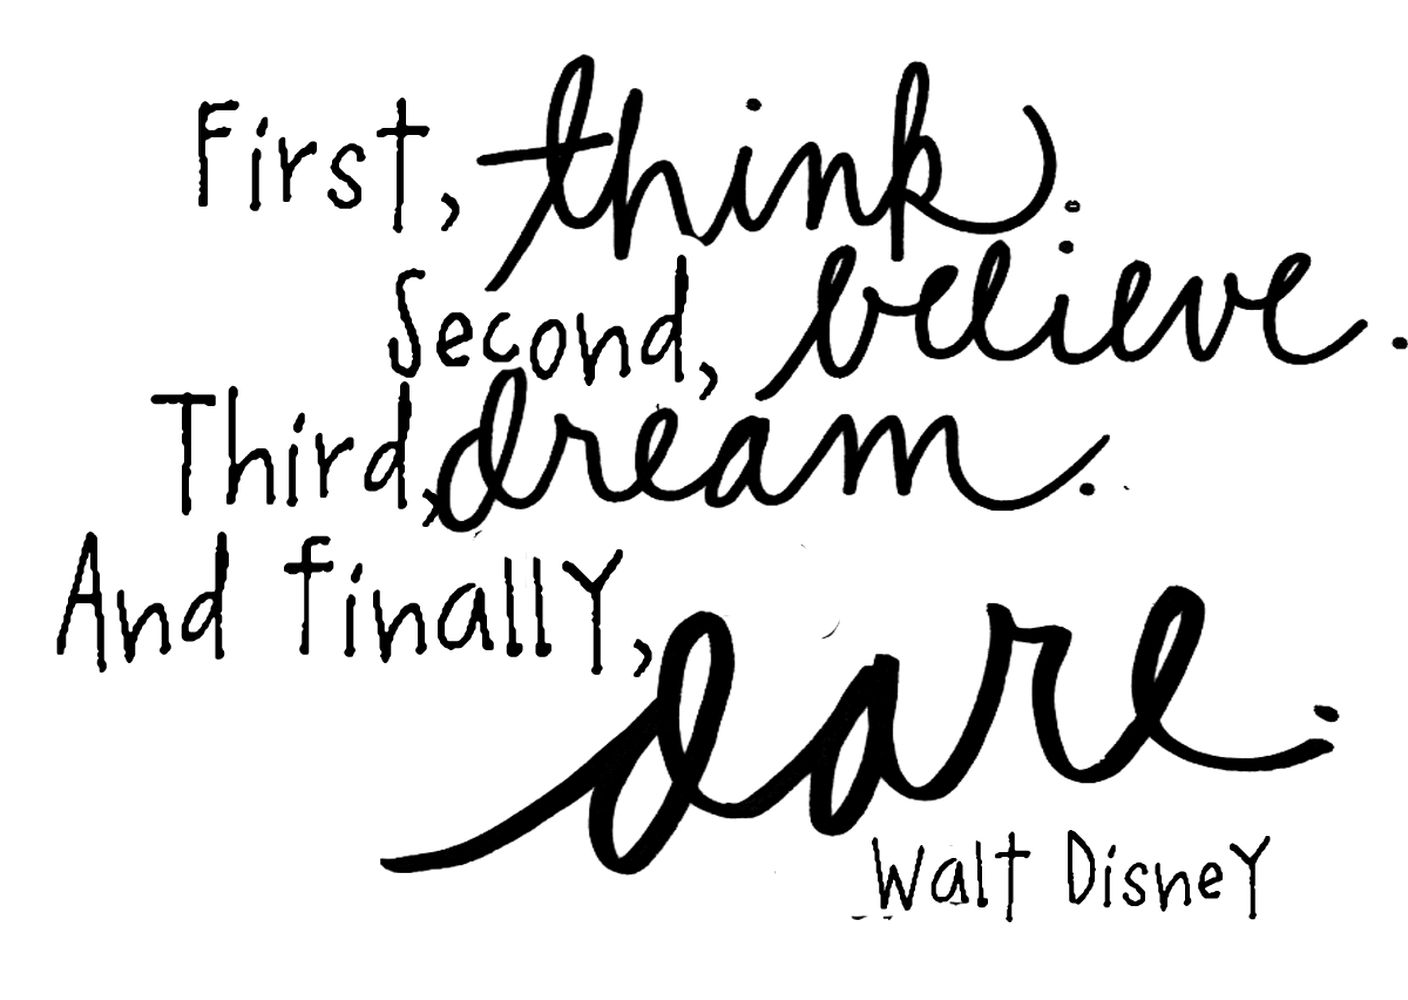 First, think.
Second, believe.
Third, dream.
And finally,
dare.
Walt Disney